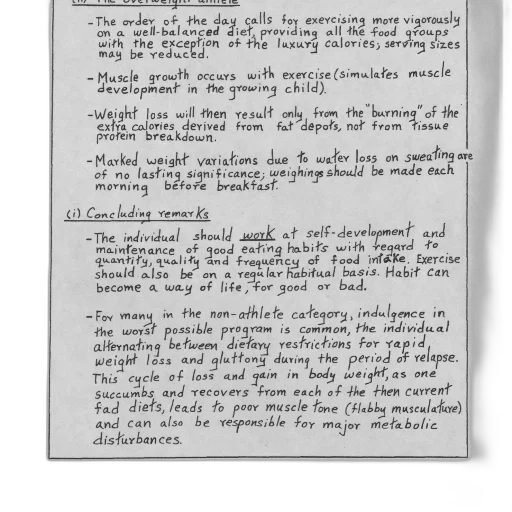 (h) The overweight athlete
-The order of the day calls for exercising more vigorously
on a well-balanced diet, providing all the food groups
with the exception of the luxury calories; serving sizes
may be reduced.
- Muscle growth occurs with exercise (simulates muscle
development in the growing child).
-Weight loss will then result only from the "burning" of the
extra calories derived from fat depots, not from tissue
protein breakdown.
- Marked weight variations due to water loss on sweating are
of no lasting significance; weighings should be made each
morning before breakfast.
(i) Concluding remarks
-The individual should work at self-development and
maintenance of good eating habits with regard to
quantity, quality and frequency of food intake. Exercise
should also be on a regular habitual basis. Habit can
become a way of life, for good or bad.
-For many in the non-athlete category, indulgence in
the worst possible program is common, the individual
alternating between dietary restrictions for rapid,
weight loss and gluttony during the period of relapse.
This cycle of loss and gain in body weight, as one
succumbs and recovers from each of the then current
fad diets, leads to poor muscle tone (flabby musculature)
and can also be responsible for major metabolic
disturbances.